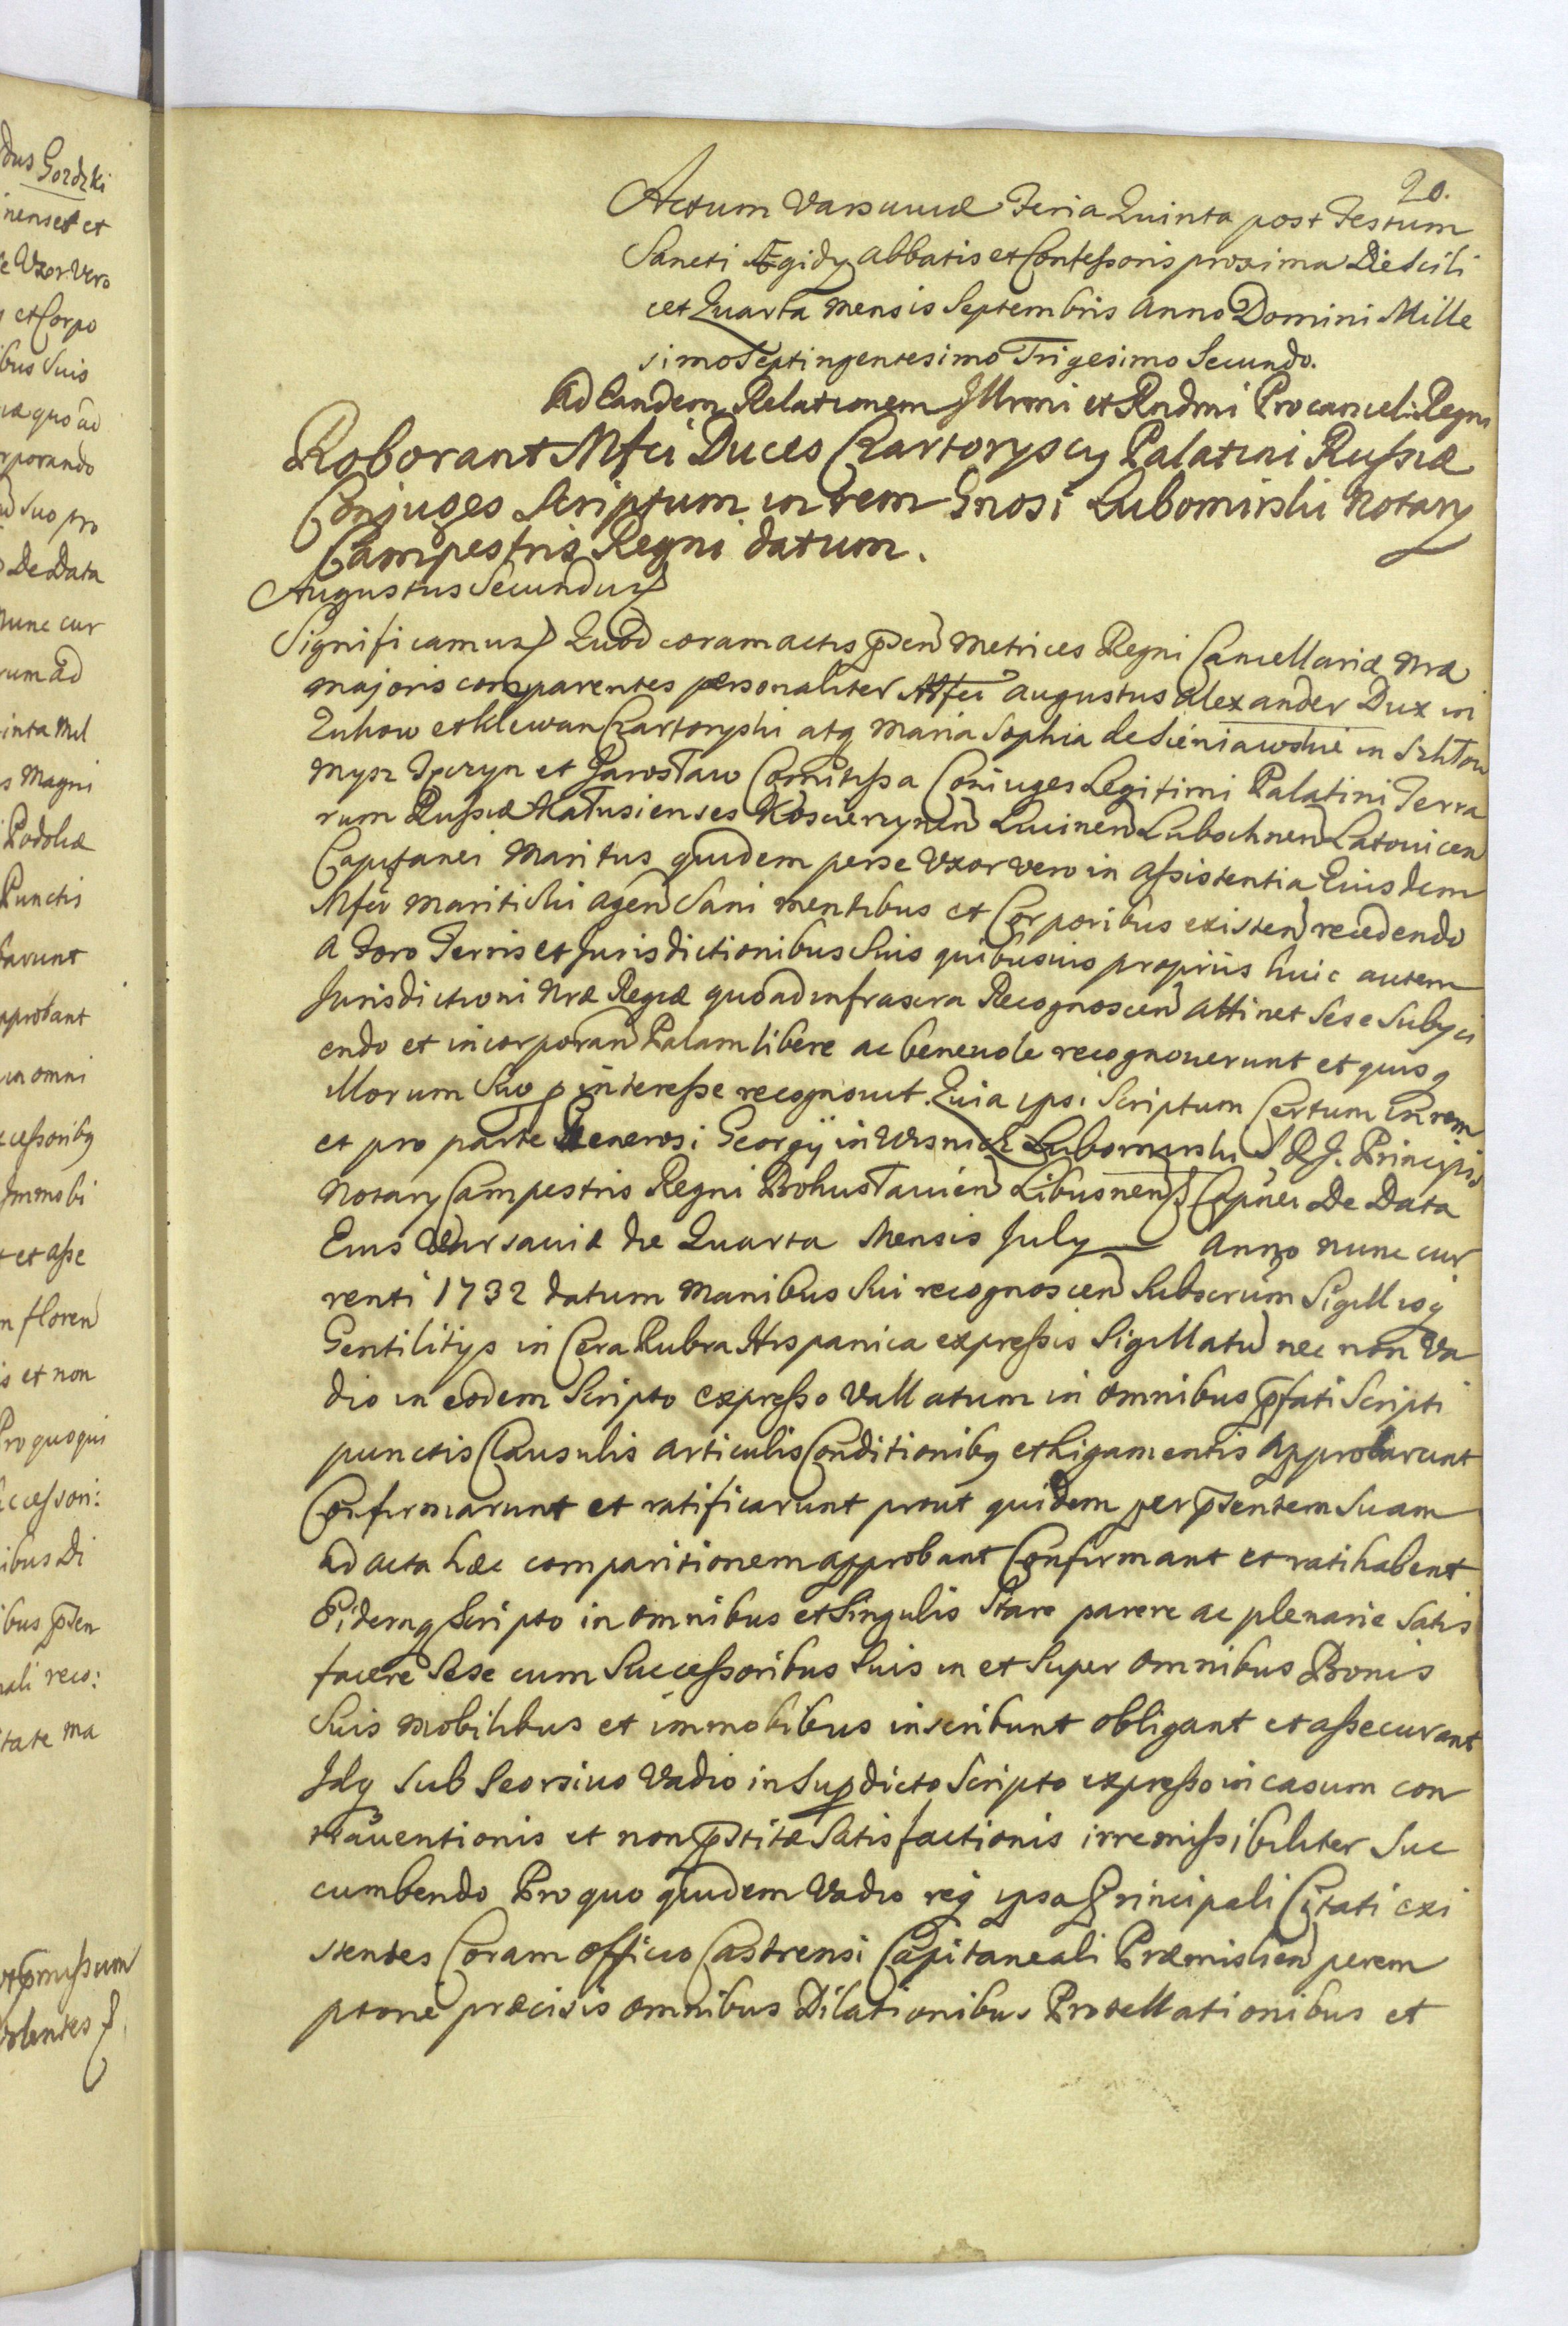 dus Gordzki
nenset et
e Uxor vero
et Corpo
bus Suis
quo ad
rporando
ad Suo pro
De Data
Nunc cur
rum ad
inta Mil
s Magni
Podoliæ
Punctis
barunt
pprobant
in omni
cessoribq
Immobi
t et asse
n floren
is et non
Pro quo qui
ccessori:
ibus Di
ibus p̄sen
nali reco:
tate ma
p̄missum
volentes
20.
Actum Varsaviæ Feria Quinta post Festum
Sancti Ægidy Abbatis et Confessoris proxima Die Scili
cet Quarta Mensis Septembris Anno Domini Mille
simo Septingentesimo Trigesimo Secundo.
Ad Eandem Relationem Illmi et Rndmi Procancel: Regni
Roborant Mfci Duces Czartoryscy Palatini Russiæ
Conjuges Scriptum in rem Gnosi Lubomirski Notary
Campestris Regni datum.
Augustus Secundus
Significamus Quod coram actis p̄sen Metrices Regni Cancellariæ Nræ
Majoris comparentes personaliter Mfci Augustus Alexander Dux in
Zukow et Klewan Czartoryski atq Maria Sophia de Sieniawskie in Szkłow
Mysz et Jarosław Comitissa Coniuges Legitimi Palatini Terra
rum Russiæ Kałusienses Koscierzynen Lucinen Lubochnen Latovicen
Capitanei Maritus quidem per se Uxor vero in Assistentia Eiusdem
Mfci Mariti Sui agen Sani mentibus et Corporibus existen recedendo
a Foro Terris et Jurisdictionibus Suis quibusvis propriis huic autem
Jurisdictioni Nræ Regiæ quoad infrascra Recognoscen attinet Sese Subyci
endo et incorporan Palam libere ac benevole recognoverunt et quisq
Illorum Suo p interesse recognovit. Quia ipsi Scriptum Certum in rem
et pro parte Generosi Georgÿ in Wisnicz Lubomirski S. R. J. Principis
Notary Campestris Regni Bohusławien Libusnen Capnei De Data
Eius Varsaviæ die Quarta Mensis July Anno nunc cur
renti 1732 datum Manibus Sui recognoscen Subscrum Sigillisq
Gentilitys in Cera Rubra Hispanica expressis Sigillatu nec non Va
dio in eodem Scripto expresso Vallatum in omnibus p̄fati Scripti
punctis Clausulis Articulis Conditionibq et Ligamentis Approbarunt
Confirmarunt et ratificarunt prout quidem per p̄sentem Suam
ad acta hæc comparitionem approbant Confirmant et ratihabent
Eidemq Scripto in omnibus et Singulis Stare parere ac plenarie Satis
facere Sese cum Successoribus Suis in et Super omnibus Bonis
Suis mobilibus et immobibus inscribunt obligant et assecurant
Idq Sub Seorsivo Vadio in Supdicto Scripto expresso in casum con
traventionis et non p̄stitæ Satisfactionis irremissibiliter Suc
cumbendo Pro quo quidem Vadio req ipsa Principali Citati exi
stentes Coram Officio Castrensi Capitaneali Præmislien perem
ptorie præcisis omnibus Dilationibus Protellationibus et